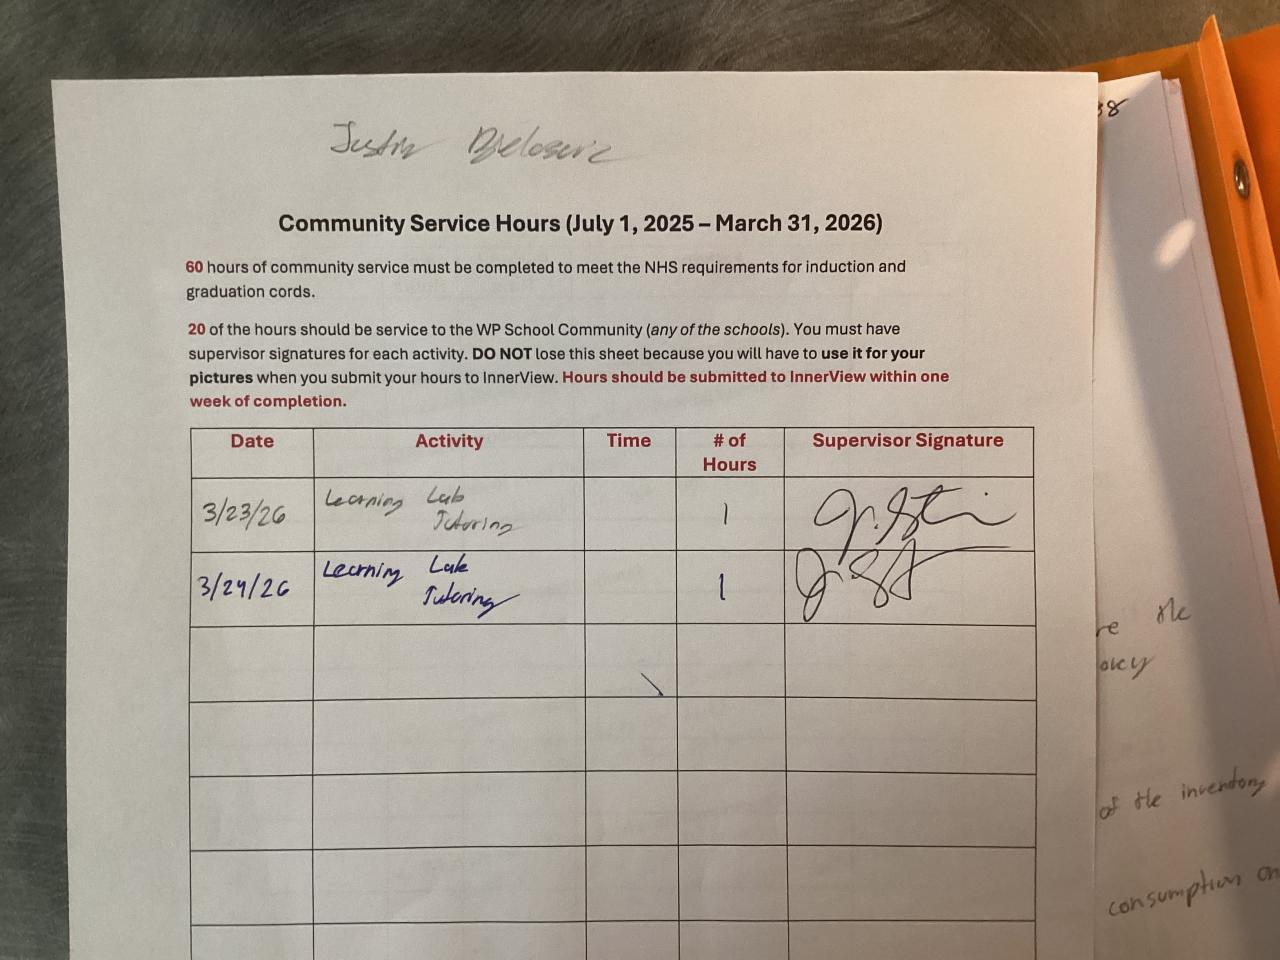 Justin
Community Service Hours (July 1, 2025 – March 31, 2026)
60 hours of community service must be completed to meet the NHS requirements for induction and
graduation cords.
20 of the hours should be service to the WP School Community (any of the schools). You must have
supervisor signatures for each activity. DO NOT lose this sheet because you will have to use it for your
pictures when you submit your hours to InnerView. Hours should be submitted to InnerView within one
week of completion.
Date Activity Time # of Hours Supervisor Signature
3/23/26 Learning Lab Tutoring 1
3/24/26 Learning Lab Tutoring 1
38
re the
of the inventory
consumption on